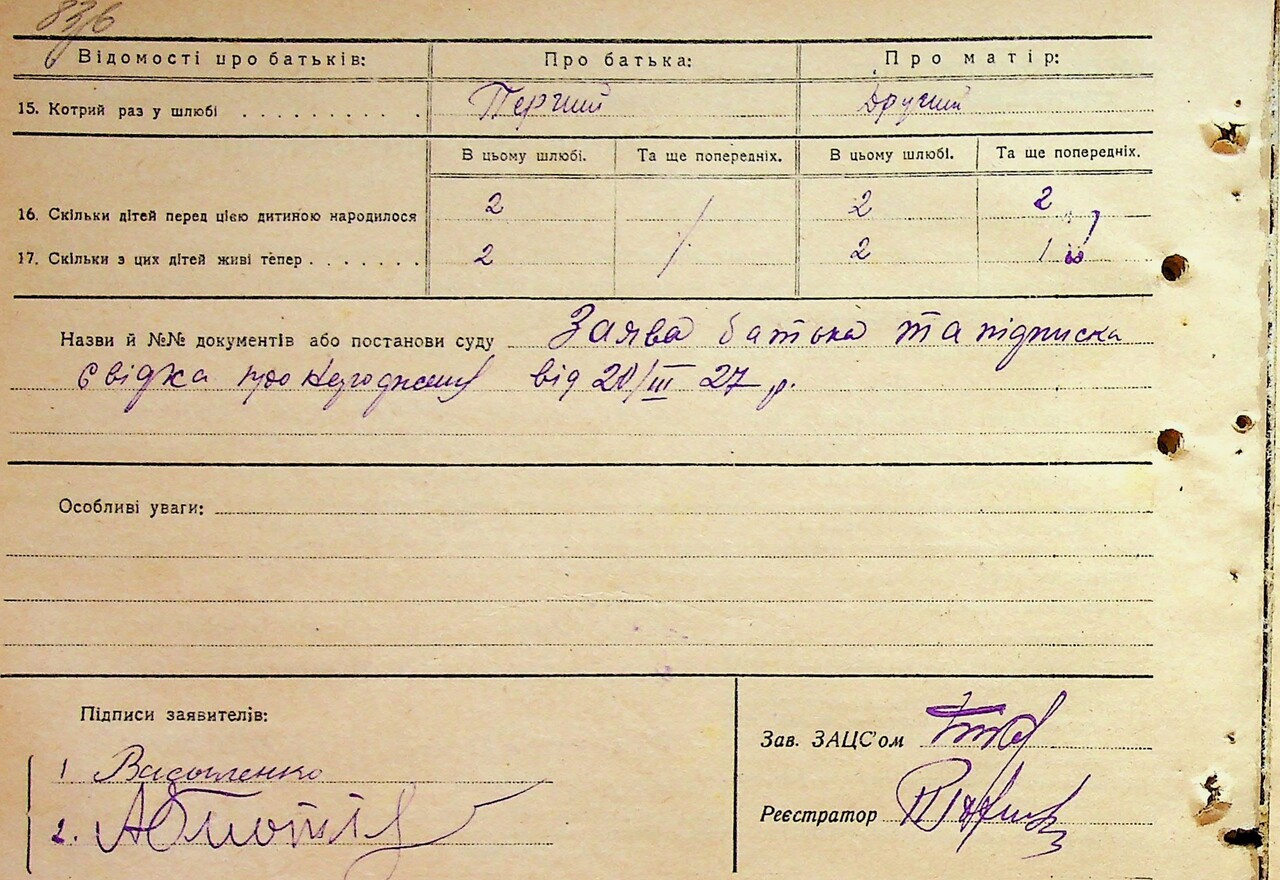 836
Відомості про батьків: Про батька: Про матір:
15. Котрий раз у шлюбі . . . . . . . . . . Перший Другий
В цьому шлюбі. Та ще попередніх. В цьому шлюбі. Та ще попередніх.
16. Скільки дітей перед цією дитиною народилося 2 / 2 2
17. Скільки з цих дітей живі тепер . . . . . . . 2 / 2 1
Назви й №№ документів або постанови суду Заява батька та підписка
свідка про народження від 20/III 27 р.
Особливі уваги:
Підписи заявителів:
Зав. ЗАЦС'ом
1 Василенко
Реєстратор
2.